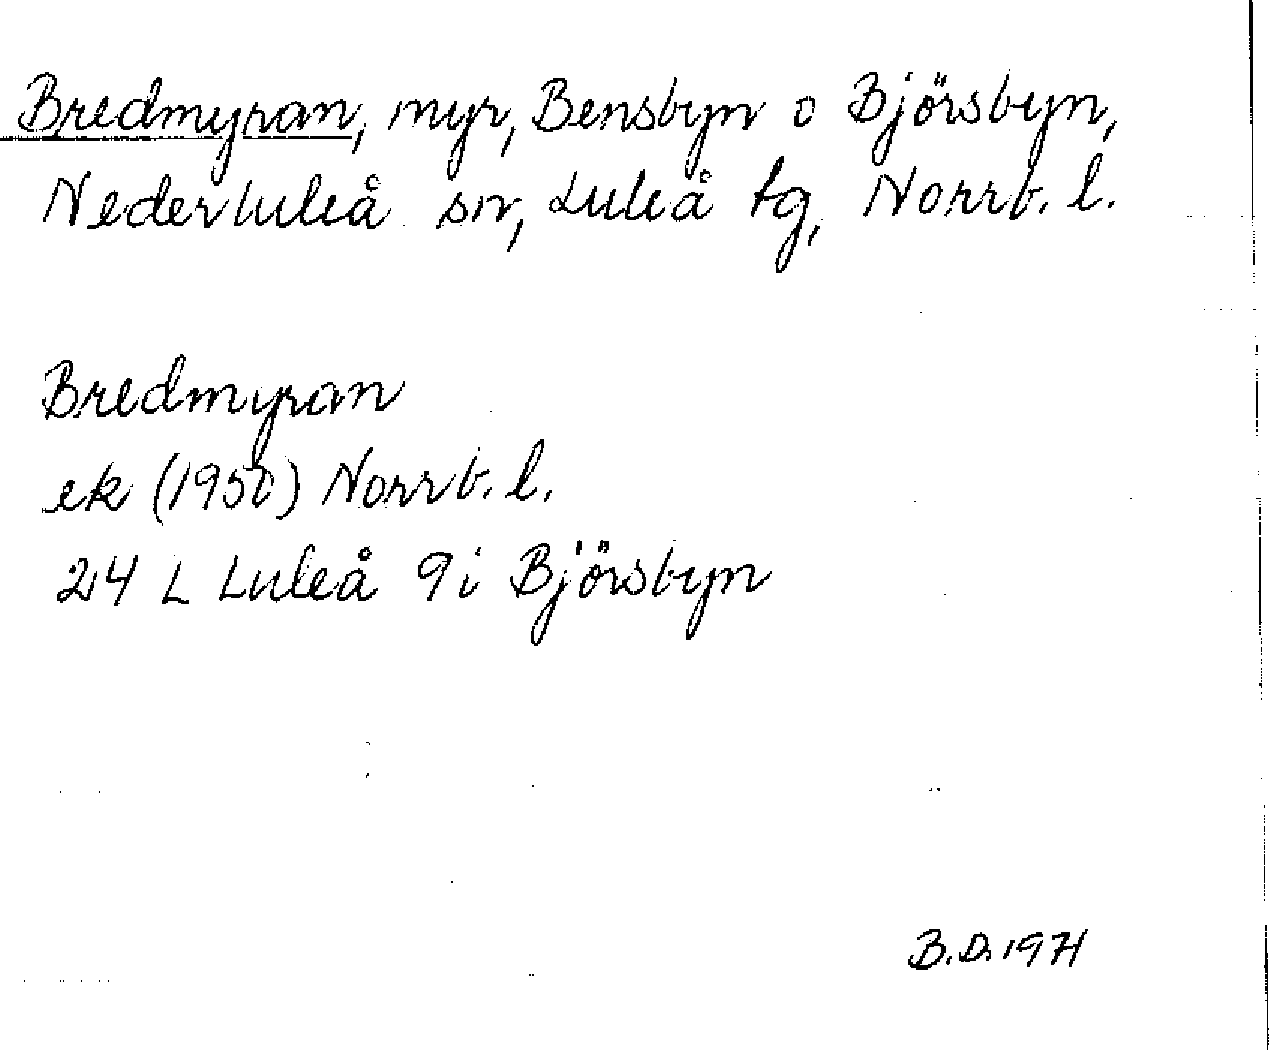 Bredmyran, myr, Bensbyn o Björsbyn,
Nederluleå sn, Luleå tg, Norrb. l.
Bredmyran
ek (1950) Norrb. l.
24 L Luleå 9i Björsbyn
B.D. 1971